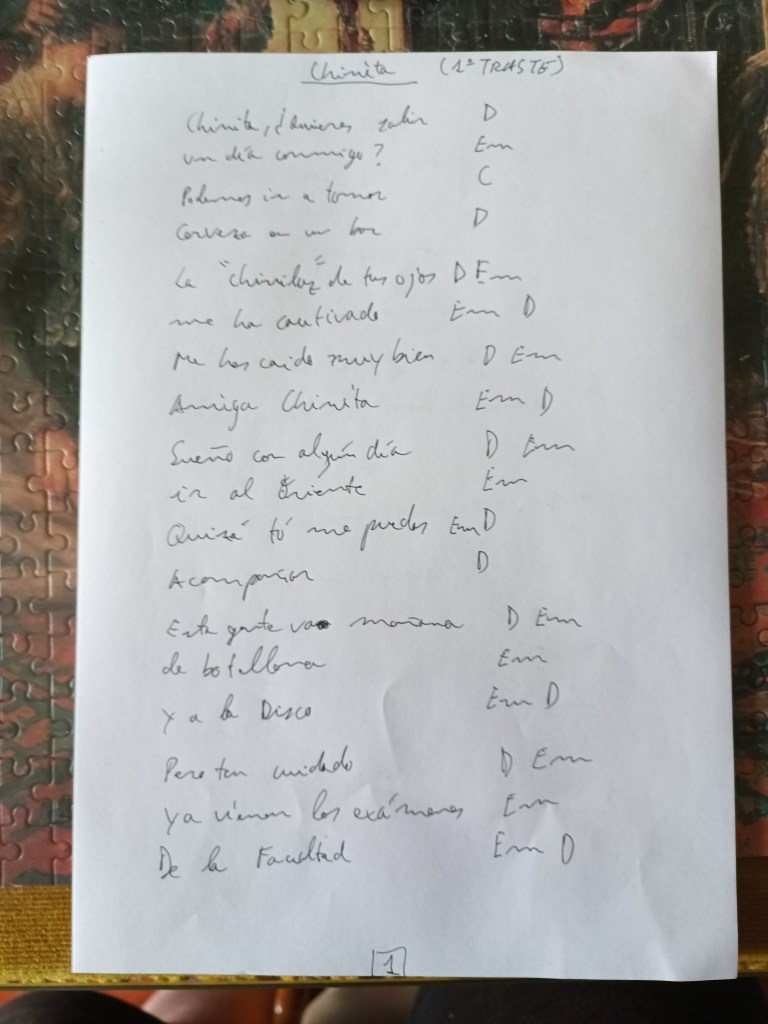 Chinita (1º TRASTE)
Chinita, ¿Quieres salir D
un día conmigo? Em
C
Podemos ir a tomar
Cerveza en un bar D
La "chinidaz" de tus ojos D Em
me ha cautivado Em D
Me has caido muy bien D Em
Amiga Chinita Em D
Sueño con algún día D Em
ir al Oriente Em
Quizá tú me puedas Em D
Acompañar D
Esta gente va mañana D Em
de botellona Em
Y a la Disco Em D
Pero ten cuidado D Em
Ya vienen los exámenes Em
De la Facultad Em D
1